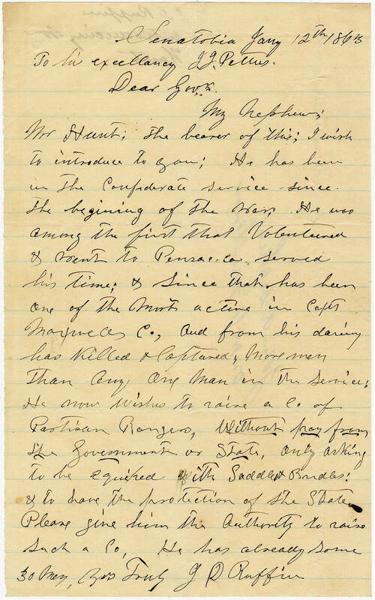 Senatobia Jany 12th 1863
To his excellancy J.J. Pettus.
Dear Govr.
My Nephew;
Mr Hunt; the bearer of this; I wish
to introduce to you; He has been
in the Confederate Service since
the begining of the War, He was
among the first that Voluntured
& went to Pensacola served
his time; & since that has been
one of the most active in Capt
Co, and from his daring
has Killed & Captured, More men
than any one man in the Service;
He now wishes to raise a Co of
Partisan Rangers, without pay from
the Government or State, only asking
to be equiped with Saddles & Bridles!
& to have the protection of the State
Please give him the Authority to raise
such a Co, He has already some
30 men, Yrs Truly J D Ruffin